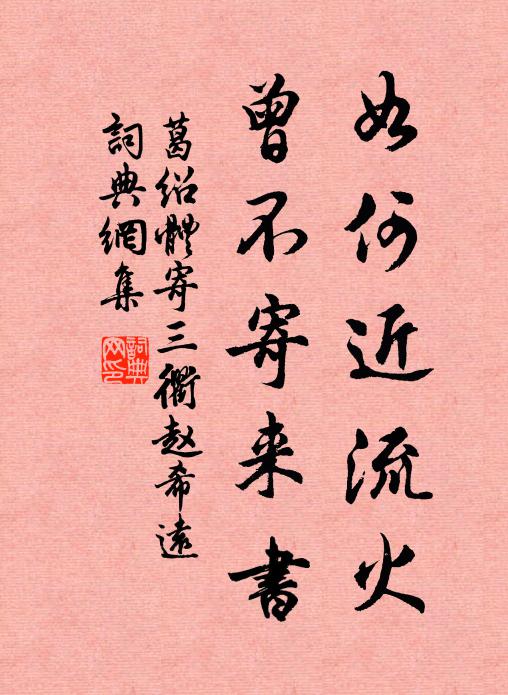 如何近流火
曾不寄来書
葛绍體寄三衢赵希遠
詞典網集
詞典網印